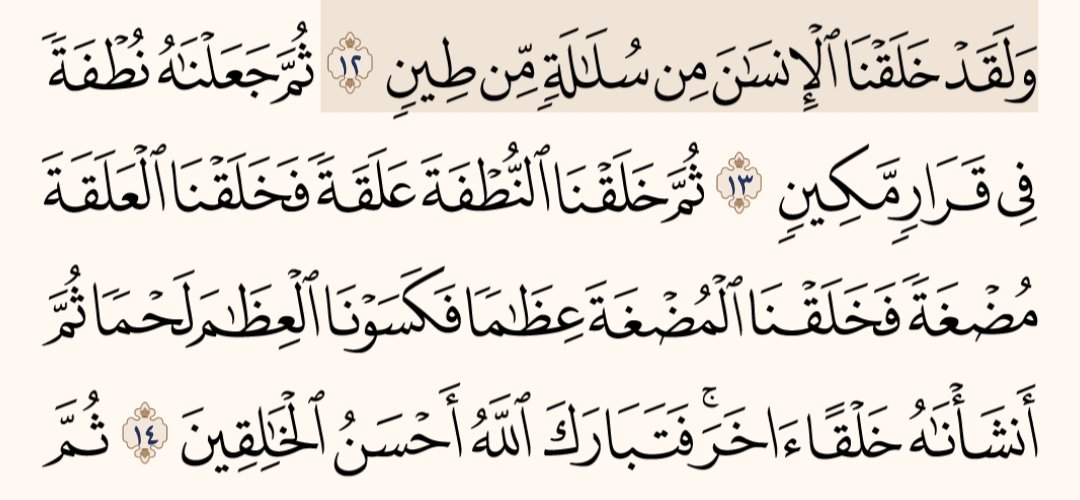 وَلَقَدۡ خَلَقۡنَا ٱلۡإِنسَٰنَ مِن سُلَٰلَةٖ مِّن طِينٖ ١٢ ثُمَّ جَعَلۡنَٰهُ نُطۡفَةٗ
فِي قَرَارٖ مَّكِينٖ ١٣ ثُمَّ خَلَقۡنَا ٱلنُّطۡفَةَ عَلَقَةٗ فَخَلَقۡنَا ٱلۡعَلَقَةَ
مُضۡغَةٗ فَخَلَقۡنَا ٱلۡمُضۡغَةَ عِظَٰمٗا فَكَسَوۡنَا ٱلۡعِظَٰمَ لَحۡمٗا ثُمَّ
أَنشَأۡنَٰهُ خَلۡقًا ءَاخَرَۚ فَتَبَارَكَ ٱللَّهُ أَحۡسَنُ ٱلۡخَٰلِقِينَ ١٤ ثُمَّ